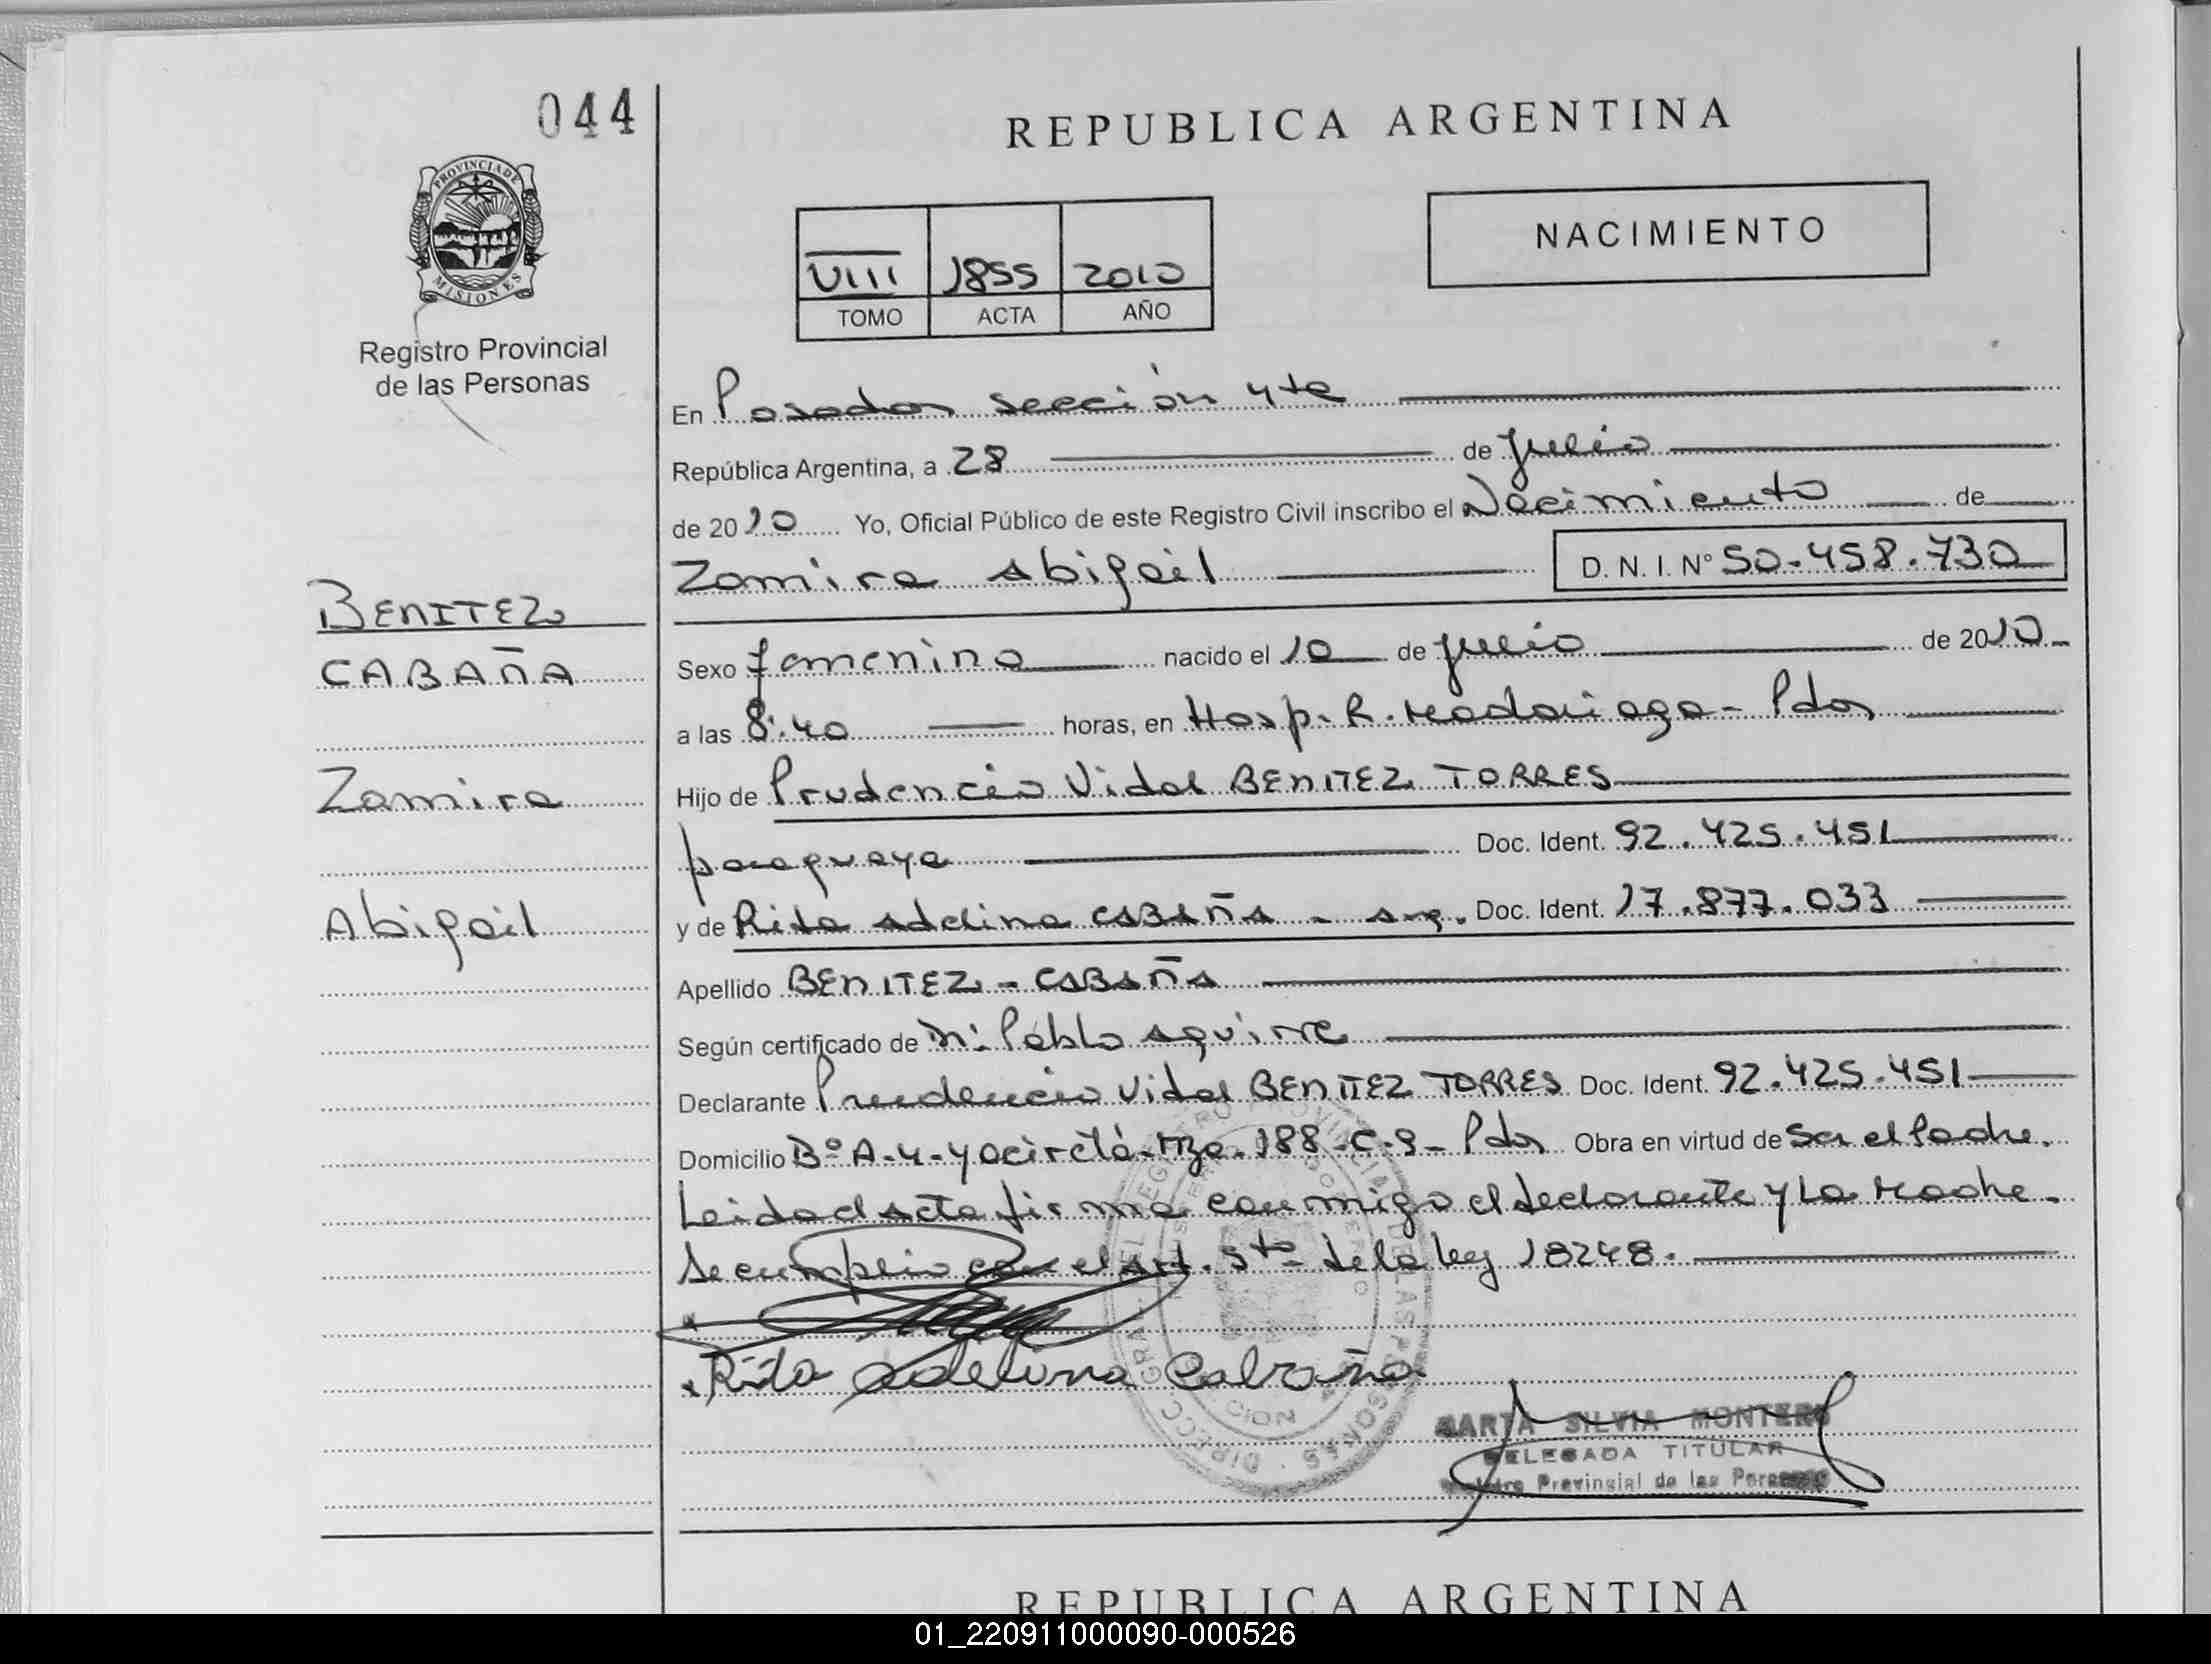 044
REPUBLICA ARGENTINA
PROVINCIA DE
MISIONES
Registro Provincial
de las Personas
VIII 1855 2010
TOMO ACTA AÑO
NACIMIENTO
En Posadas sección 4ta
República Argentina, a 28 de julio
de 2010 Yo, Oficial Público de este Registro Civil inscribo el Nacimiento de
Zamira Abigail D. N. I. N° 50.458.730
BENITEZ
CABAÑA
Zamira
Abigail
Sexo femenino nacido el 10 de julio de 2010
a las 8:40 horas, en Hosp. R. Madariaga - Pdas
Hijo de Prudencio Vidal BENITEZ TORRES
paraguaya Doc. Ident. 92.425.451
y de Rita Adelina CABAÑA - arg. Doc. Ident. 17.877.033
Apellido BENITEZ - CABAÑA
Según certificado de Pablo Aguirre
Declarante Prudencio Vidal BENITEZ TORRES Doc. Ident. 92.425.451
Domicilio B° A-4-Yacireta-Mza. 188-C-9- Pdas Obra en virtud de Ser el Padre.
Leida el acta firma conmigo el declarante y la Madre.
Se cumplio con el art. 5to de la ley 18248.
Rita Adelina Cabaña
MARTA SILVIA MONTERO
DELEGADA TITULAR
Provincial de las Personas
REPUBLICA ARGENTINA
01_220911000090-000526